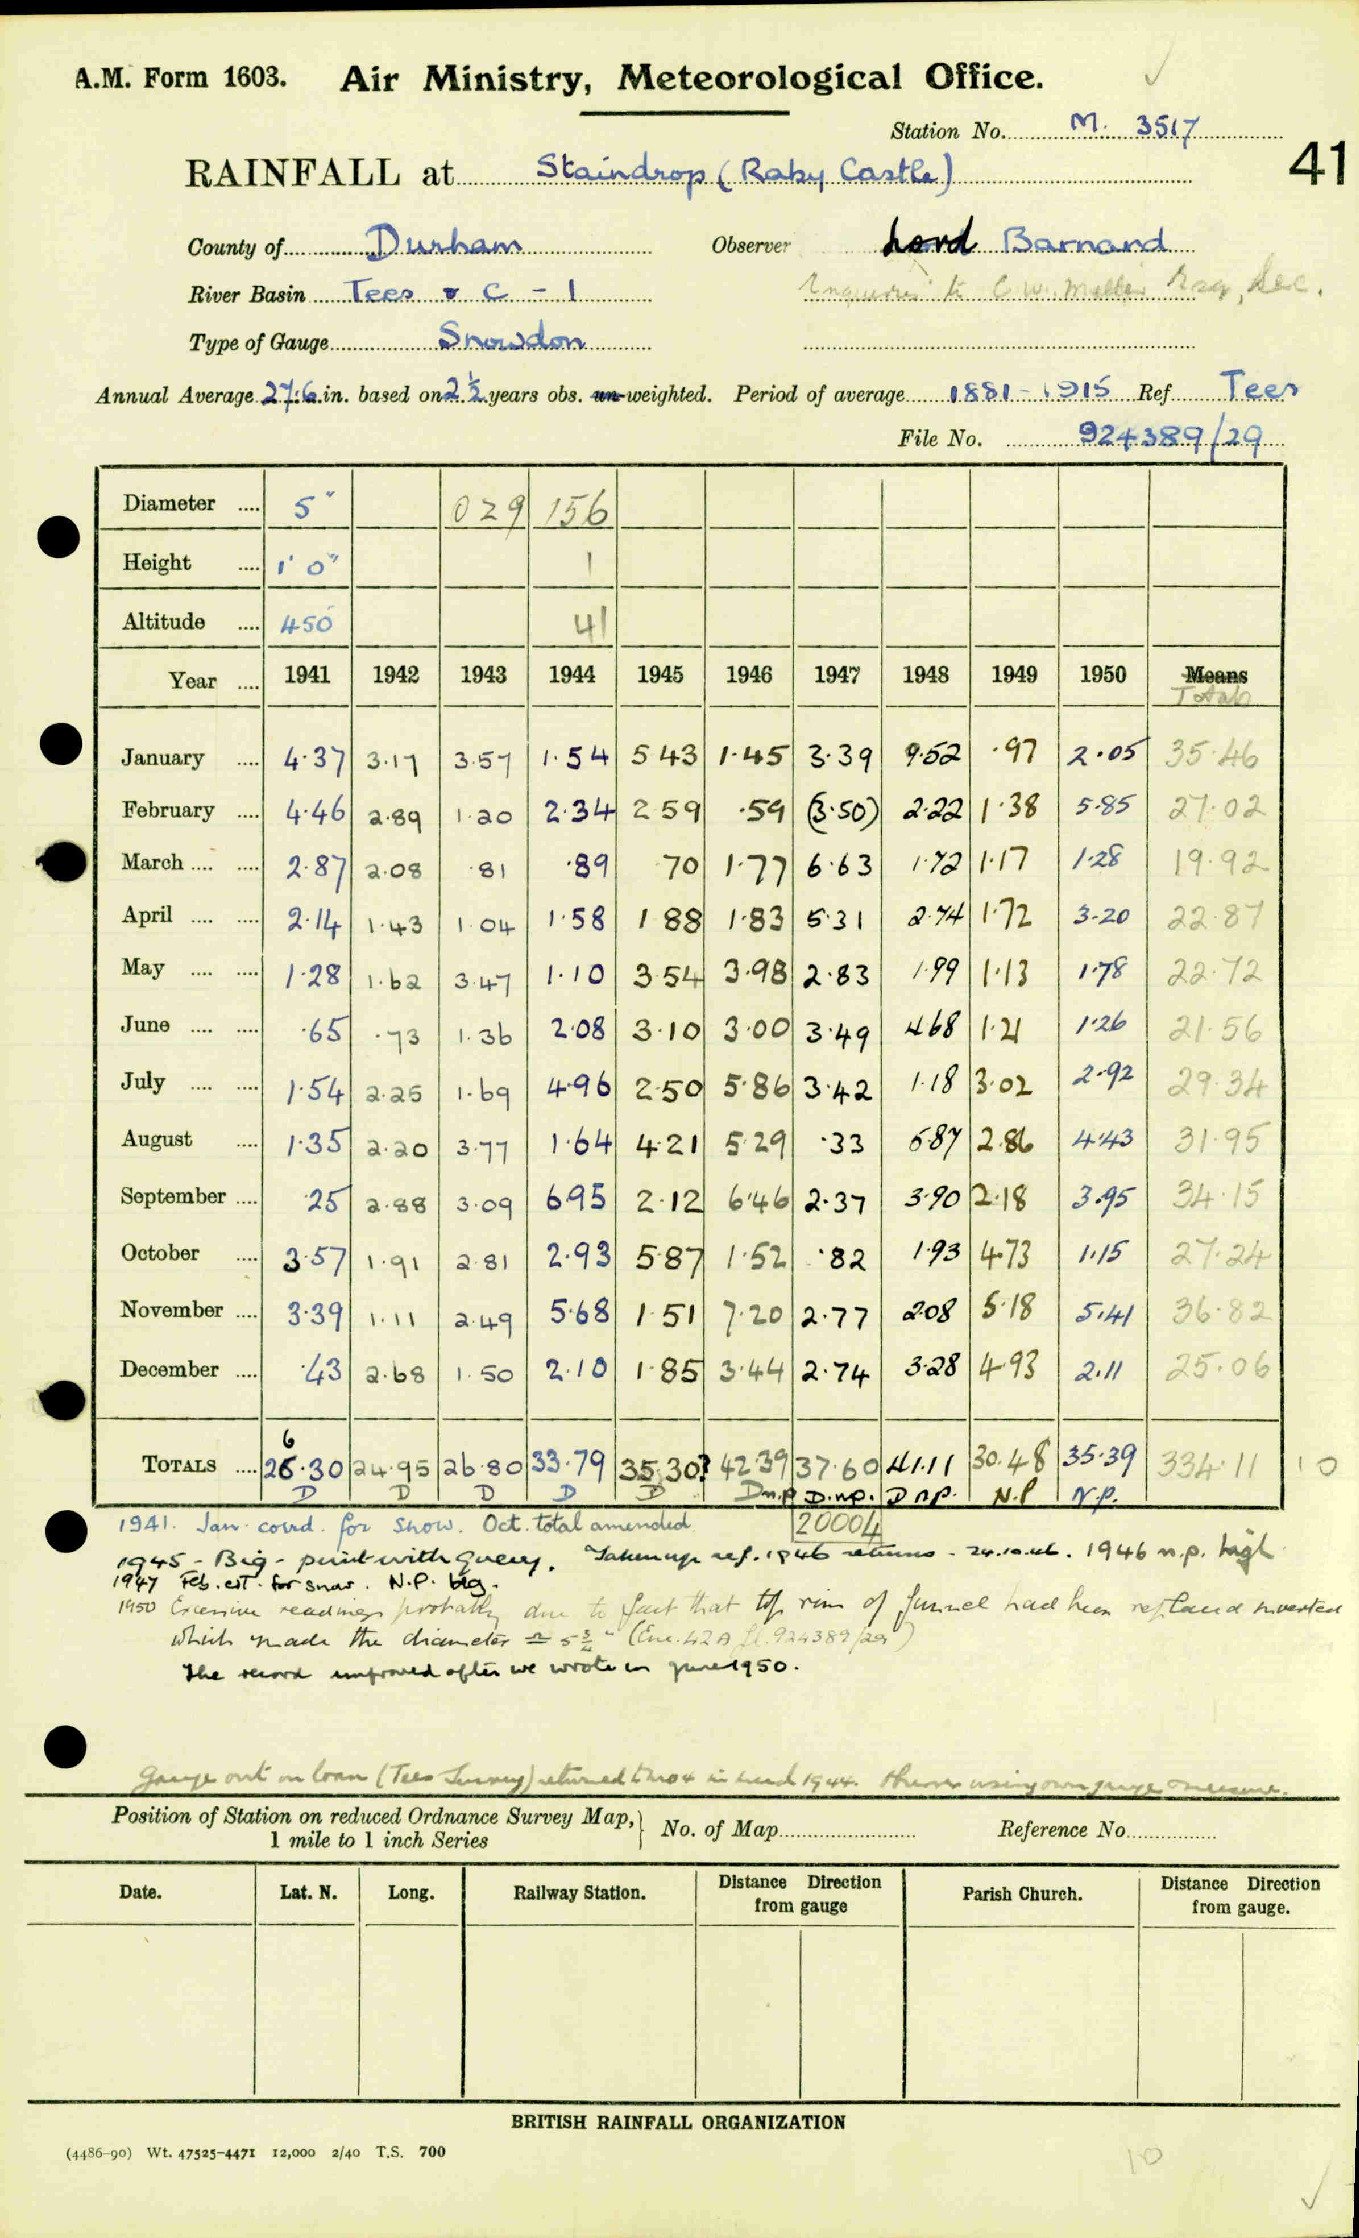 A.M. Form 1603. Air Ministry, Meteorological Office.
Station No. M. 3517
41
RAINFALL at Staindrop (Raby Castle)
County of Durham Observer Lord Barnard
River Basin Tees & C - 1 Inquiries to C. W. Esq, Sec.
Type of Gauge Snowdon
Annual Average 27.6 in. based on 2½ years obs. un-weighted. Period of average 1881-1915 Ref Tees
File No. 924389/29
Diameter .... 5" 029 156
Height .... 1' 0" 1
Altitude .... 450 41
Year .... 1941 1942 1943 1944 1945 1946 1947 1948 1949 1950 Means
Totals
January .... 4.37 3.17 3.57 1.54 5 43 1.45 3.39 9.52 .97 2.05 35.46
February .... 4.46 2.89 1.20 2.34 2 59 .59 (3.50) 2.22 1.38 5.85 27.02
March .... .... 2.87 2.08 .81 .89 70 1.77 6.63 1.72 1.17 1.28 19.92
April .... .... 2.14 1.43 1.04 1.58 1 88 1.83 5.31 2.74 1.72 3.20 22.87
May .... .... 1.28 1.62 3.47 1.10 3 54 3.98 2.83 1.99 1.13 1.78 22.72
June .... .... .65 .73 1.36 2.08 3.10 3.00 3.49 4.68 1.21 1.26 21.56
July .... .... 1.54 2.25 1.69 4.96 2.50 5.86 3.42 1.18 3.02 2.92 29.34
August .... 1.35 2.20 3.77 1.64 4.21 5.29 .33 5.87 2.86 4.43 31.95
September .... .25 2.88 3.09 6.95 2.12 6.46 2.37 3.90 2.18 3.95 34.15
October .... 3.57 1.91 2.81 2.93 5.87 1.52 .82 1.93 4.73 1.15 27.24
November .... 3.39 1.11 2.49 5.68 1.51 7.20 2.77 2.08 5.18 5.41 36.82
December .... .43 2.68 1.50 2.10 1.85 3.44 2.74 3.28 4.93 2.11 25.06
6
TOTALS .... 26.30 24.95 26.80 33.79 35.30? 42.39 37.60 41.11 30.48 35.39 334.11 10
D D D D D D n.p D. n.p. D n.p. N.P N.P.
20004
1941. Jan. corrd. for snow. Oct. total amended
1945 - Big - print with query. Taken up ref. 1946 returns - 24.10.46. 1946 n.p. high
1947 Feb. est. for snow. N.P. big.
1950 Excessive readings probably due to fact that top rim of funnel had been replaced inverted
which made the diameter = 5¾" (Enc. 42A fl. 924389/29)
The record improved after we wrote in June 1950.
Gauge out on loan (Tees Survey) returned to M.O. in 1944. Observer using own gauge & measure.
Position of Station on reduced Ordnance Survey Map, } No. of Map Reference No.
1 mile to 1 inch Series
Date. Lat. N. Long. Railway Station. Distance Direction from gauge Parish Church. Distance Direction from gauge.
BRITISH RAINFALL ORGANIZATION
(4486-90) Wt. 47525-4471 12,000 2/40 T.S. 700
10